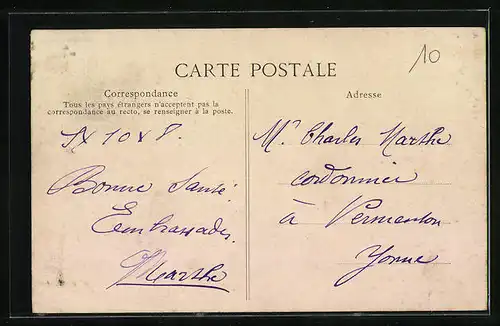 10
CARTE POSTALE
Correspondance
Tous les pays étrangers n'acceptent pas la
correspondance au recto, se renseigner à la poste.
10 8.
Bonne Santé
Embrassades
Marthe
Adresse
Mr Charles Marthe
cordonnier
à Vermenton
Yonne